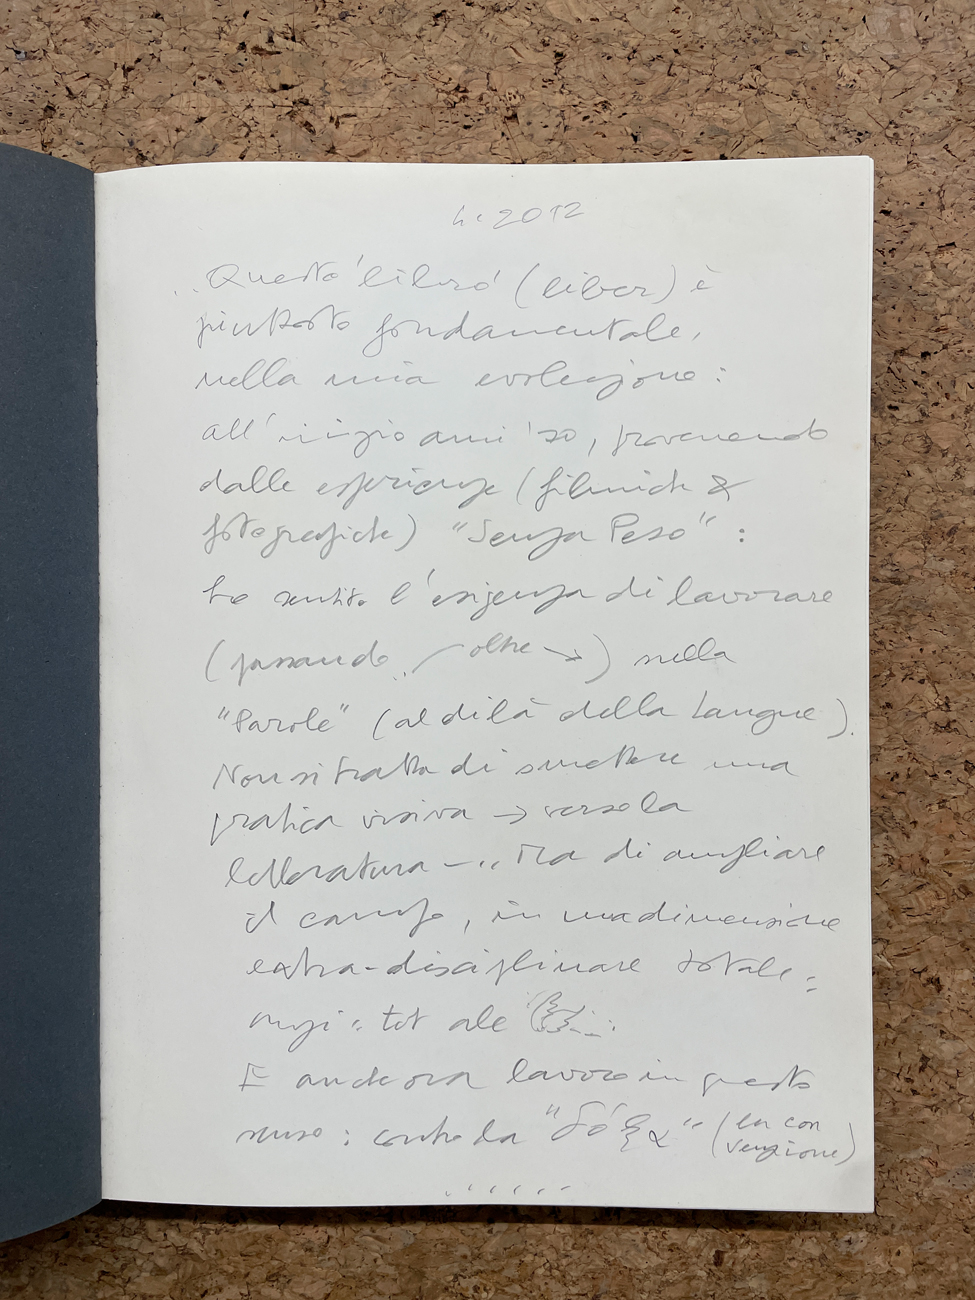 2012
..Questo 'libro' (liber) è
piuttosto fondamentale,
nella mia evoluzione:
all'inizio anni '70, provenendo
dalle esperienze (filmiche &
fotografiche) "Senza Peso" :
ho sentito l'esigenza di lavorare
(passando .. oltre →) nella
"Parole" (al di là della Langue).
Non si tratta di smettere una
pratica visiva → verso la
letteratura –.. Ma di ampliare
il campo, in una dimensione
extra-disciplinare totale;
anzi : tot ale
E anche ora lavoro in questo
senso : contro la "δόξα" (la con
venzione)
. , , , , –